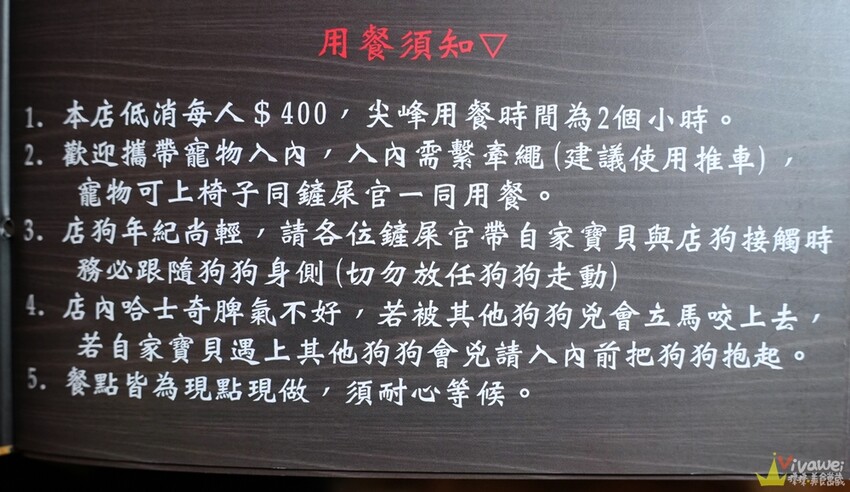 用餐須知▽
1. 本店低消每人＄400，尖峰用餐時間為2個小時。
2. 歡迎攜帶寵物入內，入內需繫牽繩(建議使用推車)，
寵物可上椅子同鏟屎官一同用餐。
3. 店狗年紀尚輕，請各位鏟屎官帶自家寶貝與店狗接觸時
務必跟隨狗狗身側(切勿放任狗狗走動)
4. 店內哈士奇脾氣不好，若被其他狗狗兇會立馬咬上去，
若自家寶貝遇上其他狗狗會兇請入內前把狗狗抱起。
5. 餐點皆為現點現做，須耐心等候。
Vivawei